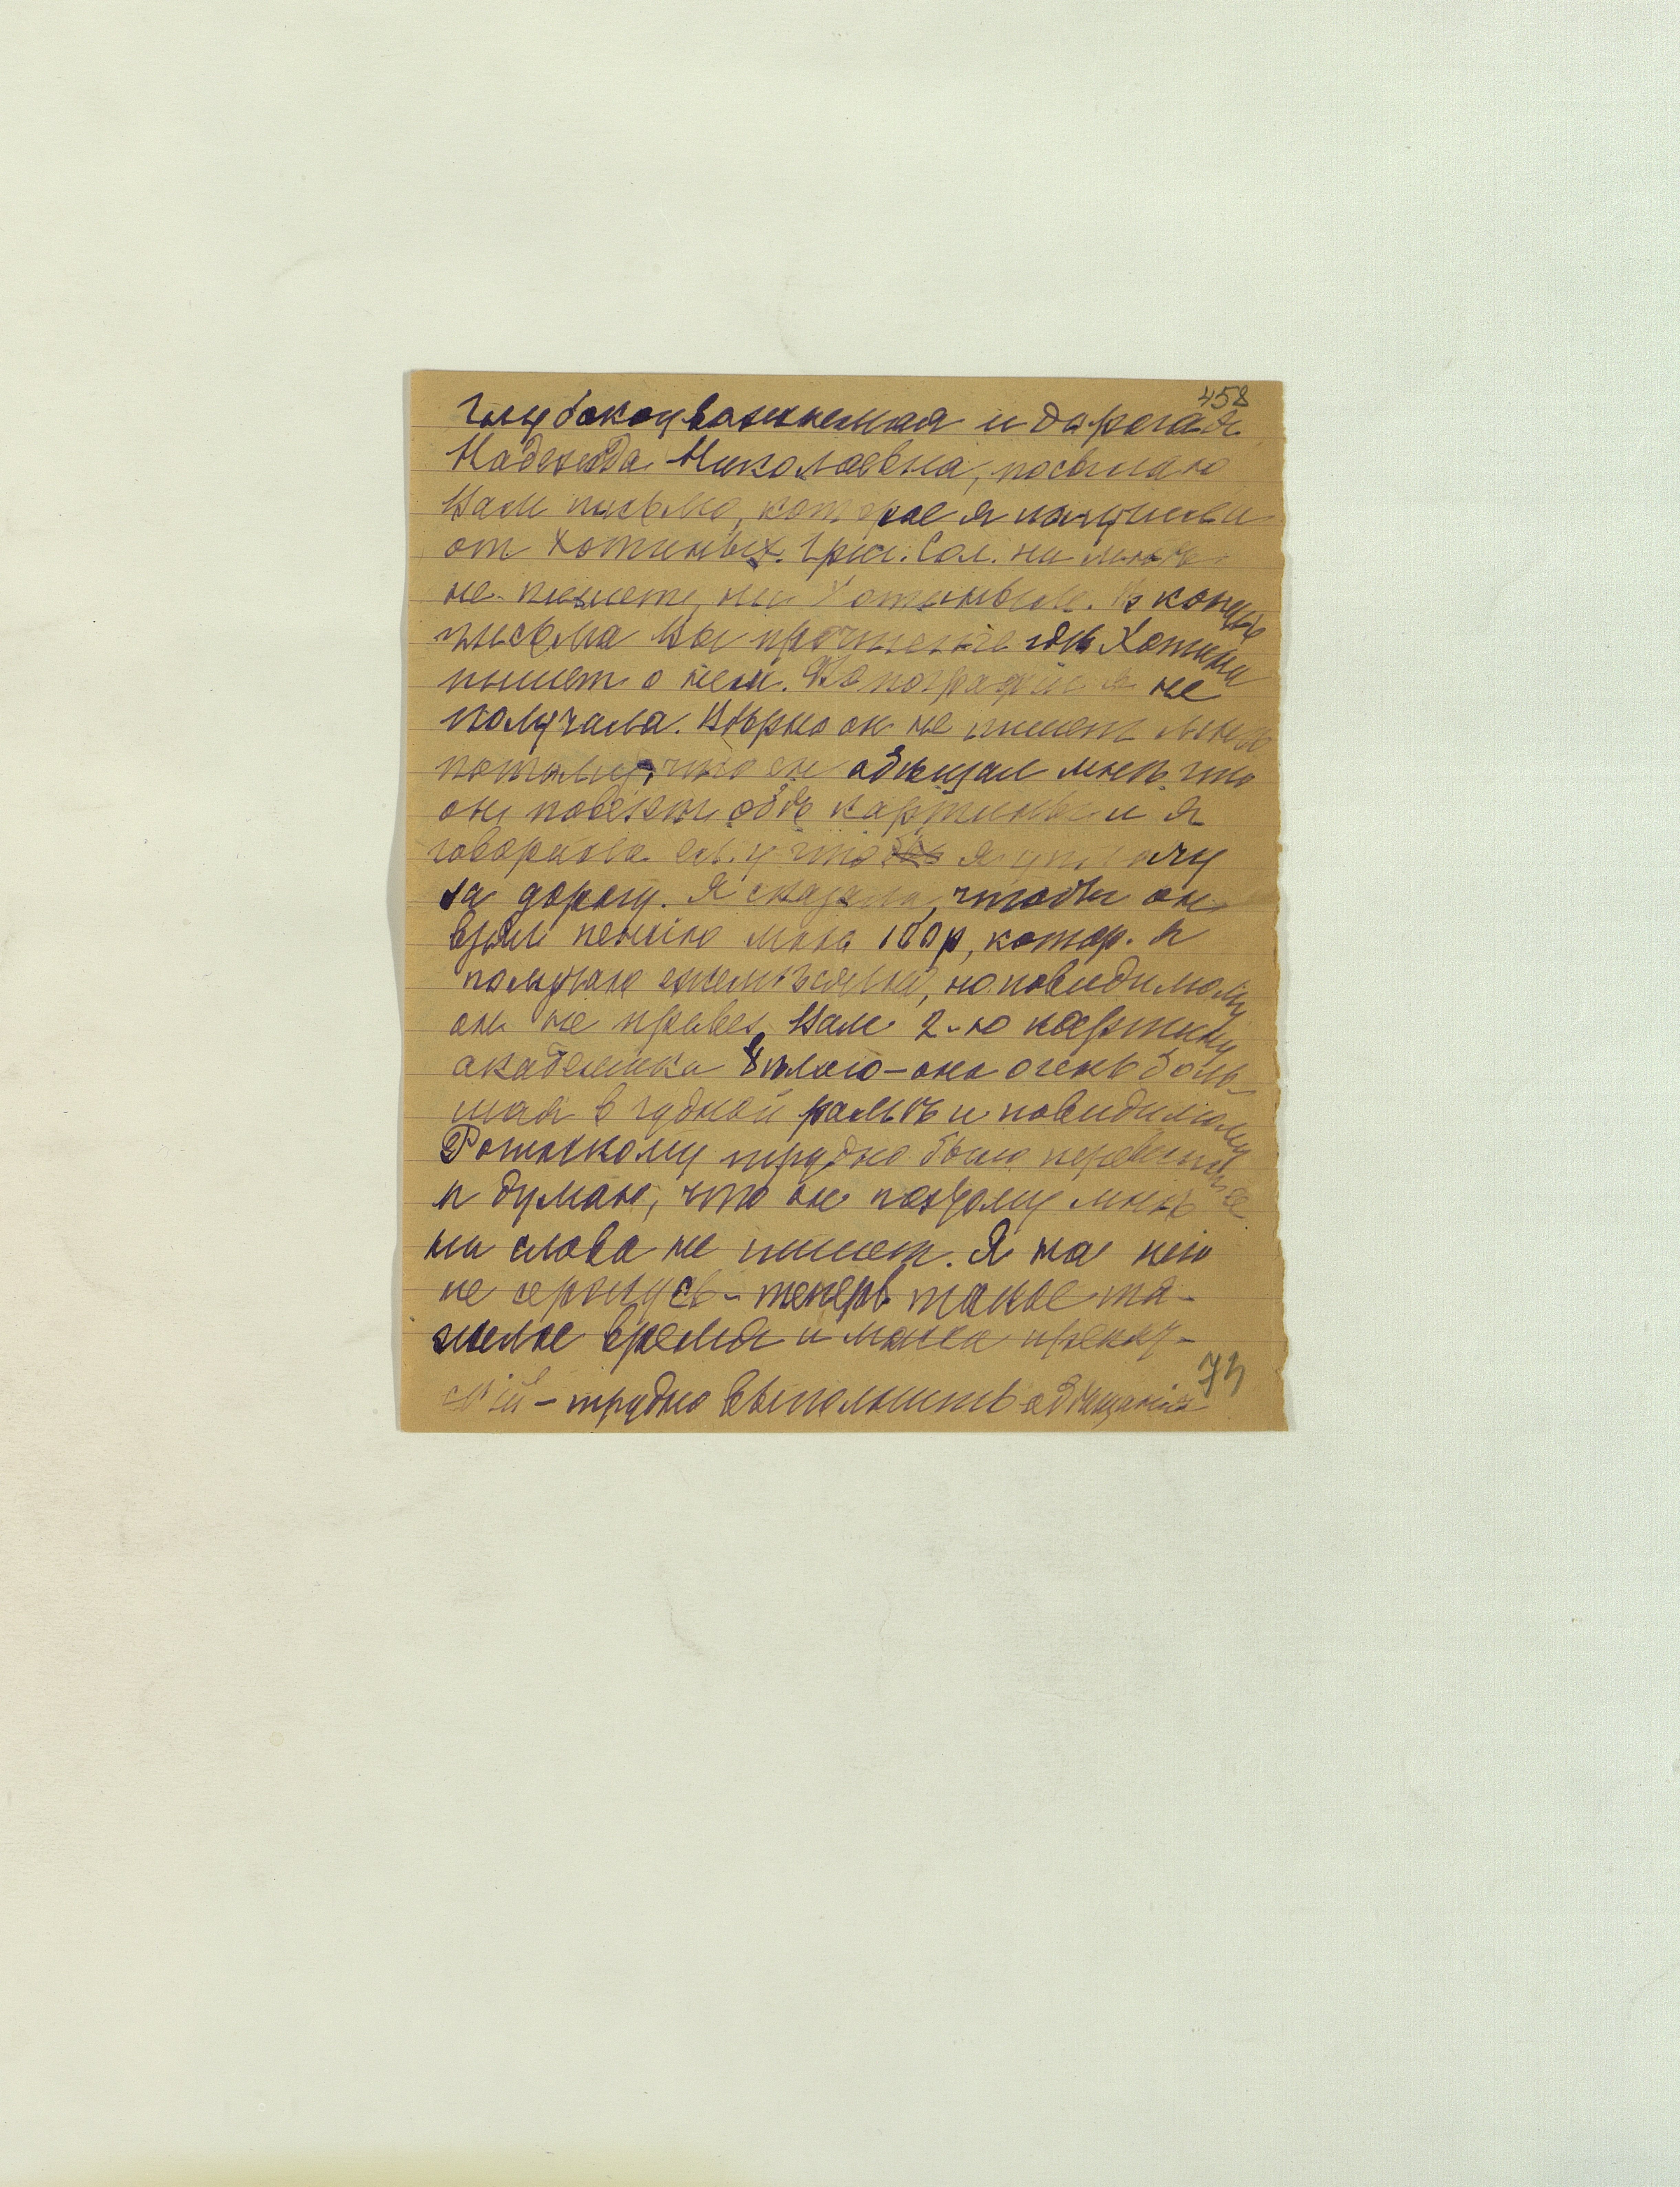 458
Глубокоуважаемая и дорогая
Надежда Николаевна, посылаю
Вам письмо, которое я получила
от Хотиных. Гри. Сол. ни мнѣ
не пишет, ни Хотиным. В концѣ
письма Вы прочтете гдѣ Хотина
пишет о нем. не
получала. Вѣрно он не пишет мнѣ
потому, что он обѣщал мнѣ что
он повезти обѣ картины и я
говорила ему что я уплачу
за дорогу. Я сказала, чтобы он
взял пенсию мою 100 р, котор. я
получаю ежемѣсячно, но повидимому
он не привез Вам 2-ю картину
академика – она очень боль-
шая в чудной рамѣ и повидимому
трудно было перевезти ее
я думаю, что он поэтому мнѣ
ни слова не пишет. Я на него
не сержусь – теперь такое тя-
желое время и масса
– трудно выполнить обѣщанія
73